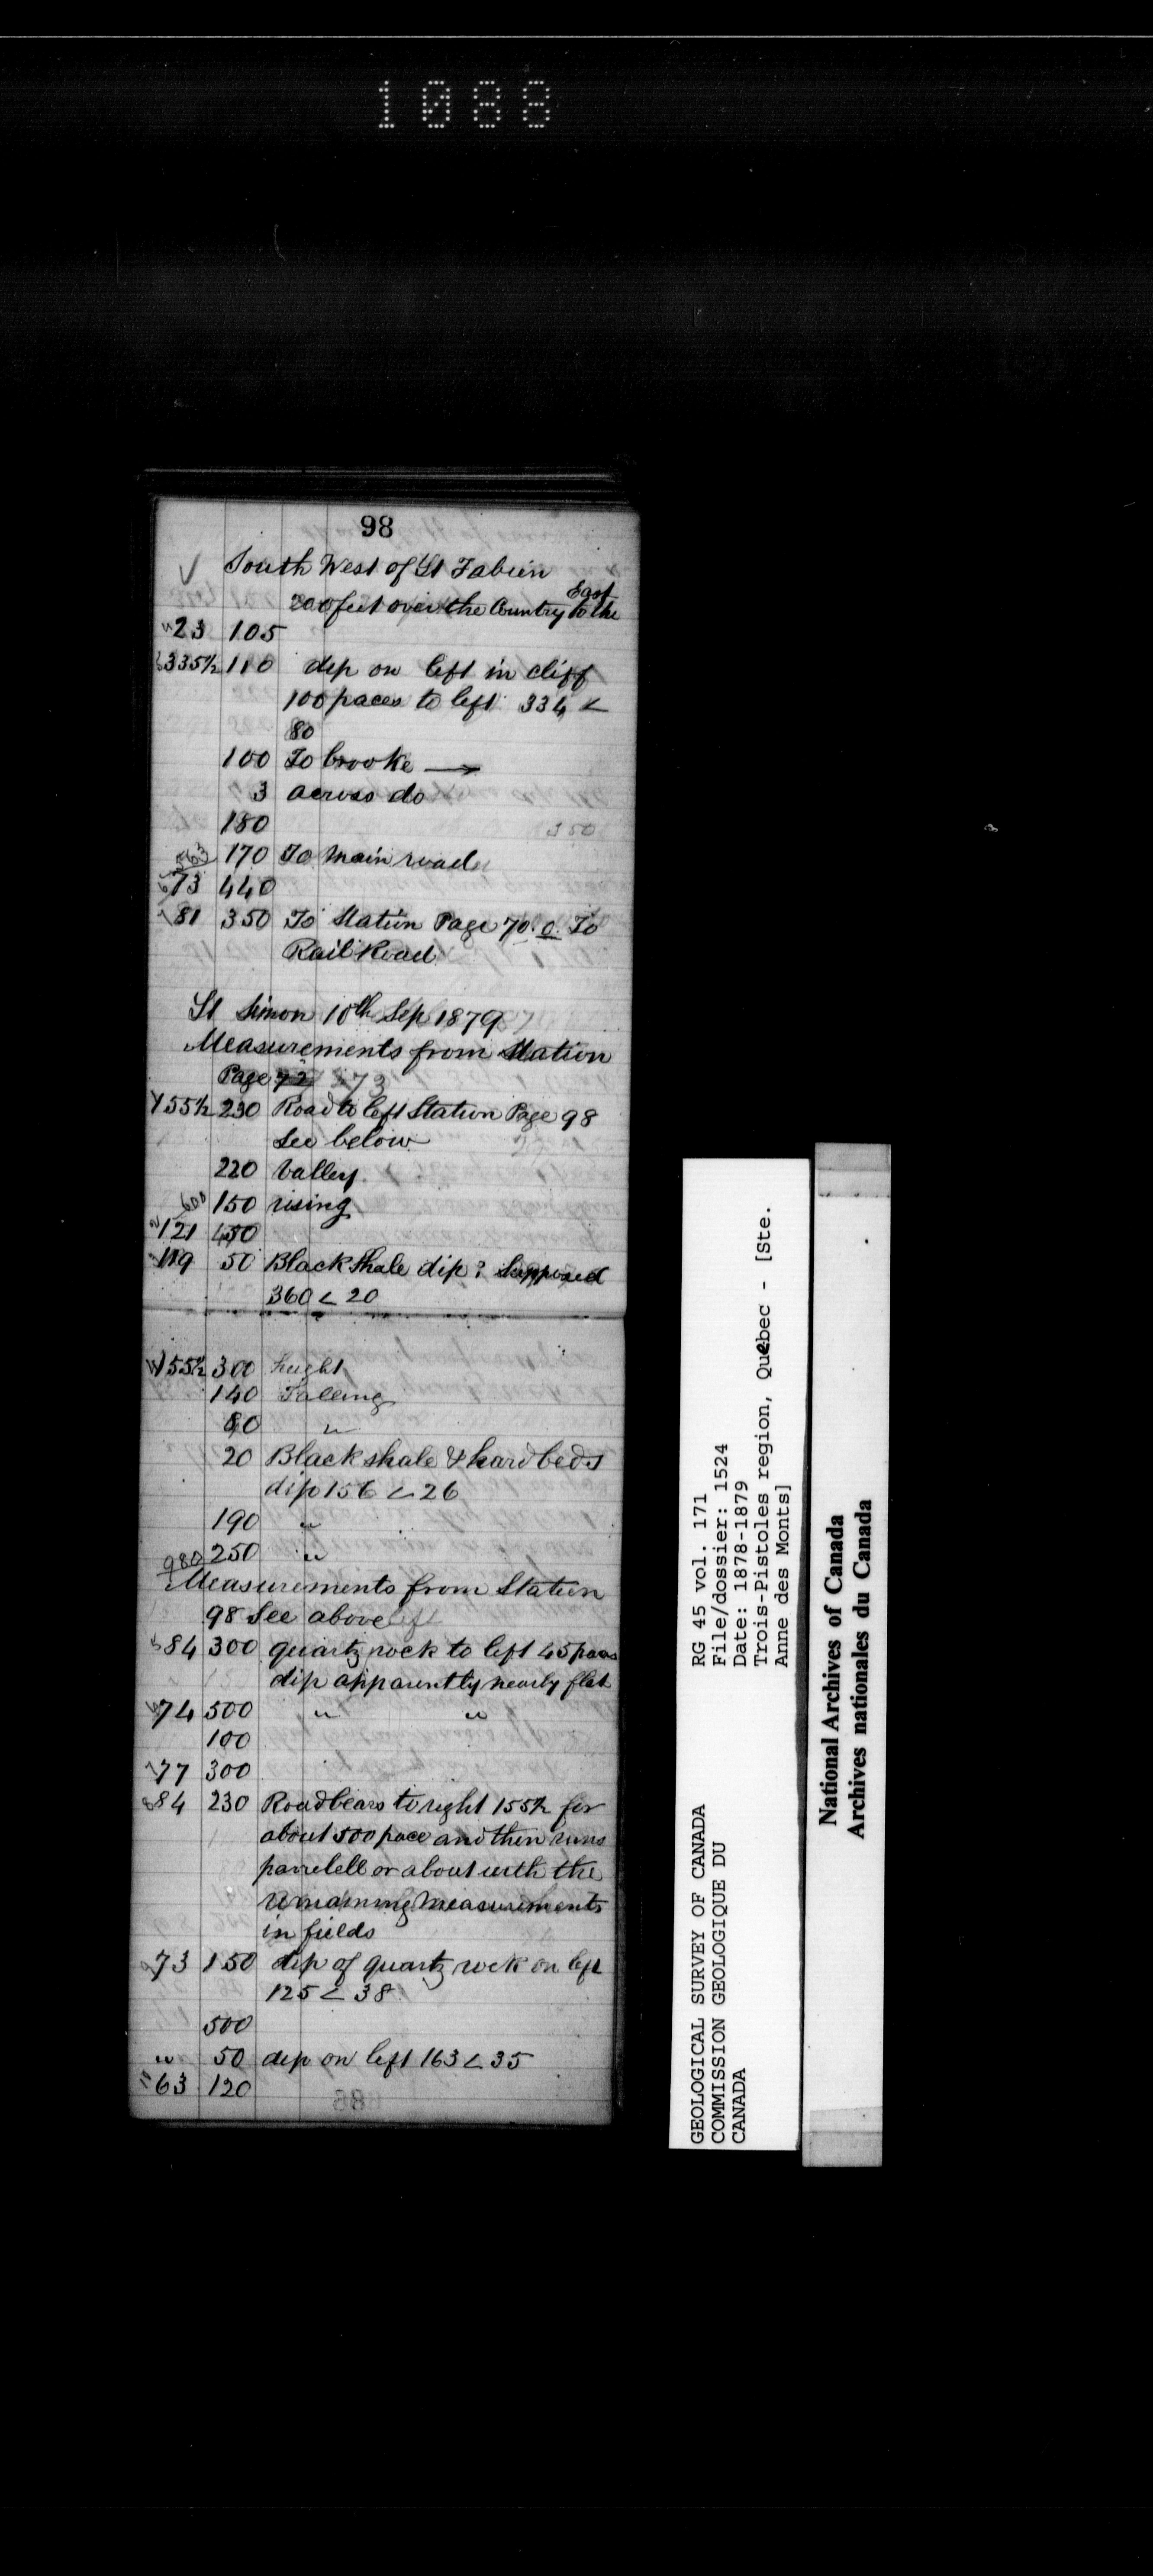 1088
98
South West of St Fabien
East
200 feet over the Country to the
23 105
335½ 110 dip on left in cliff
100 paces to left 334 <
80
100 To brooke →
3 across do
180
170 To Main road
73 440
81 350 To Station Page 70. 0. To
Rail Road
St Simon 10th Sep 1879
Measurements from Station
Page 72 73
155½ 230 Road to left Station Page 98
See below
220 Valley
600 150 rising
121 450
119 50 Black Shale dip? Supposed
360 < 20
155½ 300 height
140 Falling
80 "
20 Black shale & hard beds
dip 156 < 26
190 "
980 250 "
Measurements from Station
98 See above
84 300 quartz rock to left 45 paces
dip apparently nearly flat
74 500 " "
100
77 300
84 230 Road bears to right 155½ for
about 500 pace and then runs
parrelell or about with the
remaining measurements
in fields
73 150 dip of quartz rock on left
125 < 38
500
" 50 dip on left 163 < 35
63 120
GEOLOGICAL SURVEY OF CANADA
COMMISSION GEOLOGIQUE DU
CANADA
RG 45 vol. 171
File/dossier: 1524
Date: 1878-1879
Trois-Pistoles region, Québec - [Ste.
Anne des Monts]
National Archives of Canada
Archives nationales du Canada